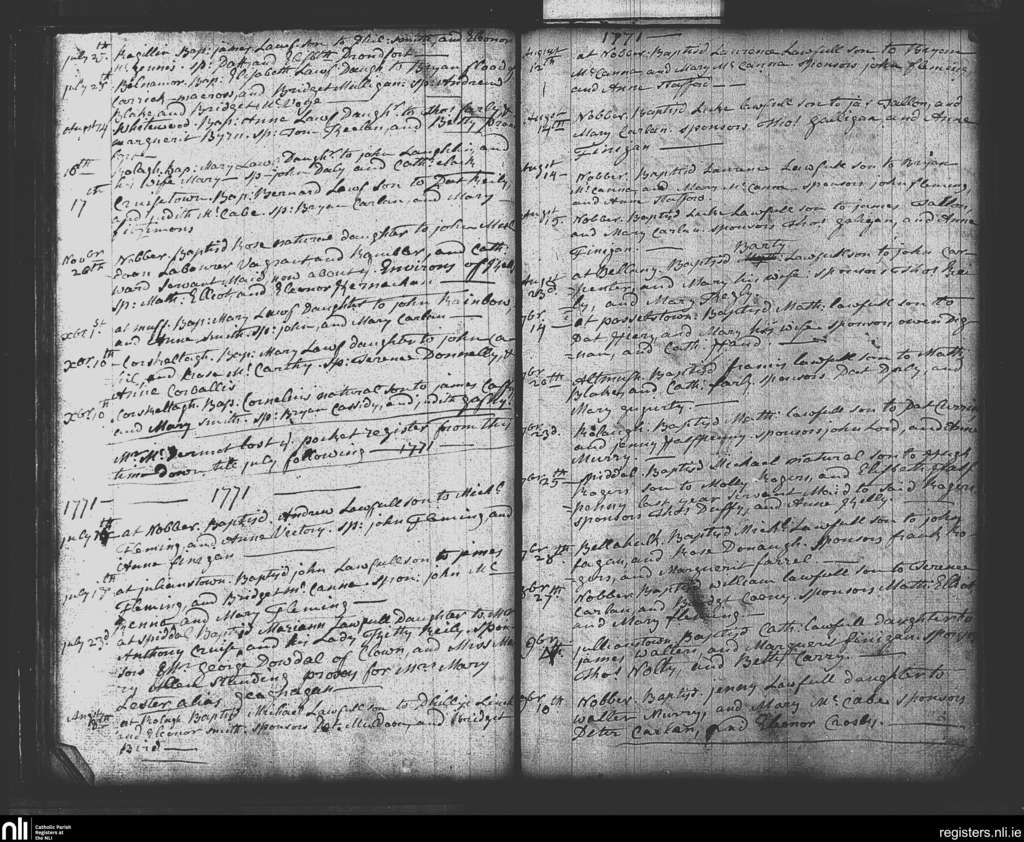 july 25th Kagillin Bap: james Lawf. son to Phil: Smith, and Eleonor
sp: Patt, and Elisbth
july 25th Balnamor. Bap: Elisabeth Lawf. Daugh. to Bryan flood of
Carrick macross, and Bridget Mulligan: sp: Andrew
Blake, and Bridget
august 14 Whitewood. Bap: Anne Lawf Daught. to thos
margueritt Byrn. sp: Tom Freelan, and Betty
16th Rolagh. Bap: Mary Lawf: Daught. to john Laughlin, and
his wife Mary — sp: john Daly and Cath: clark
17th Cruisetown. Bap: Bernard Lawf Son to Pat Reily,
and judith Mc. Cabe. sp: Bryan Carlan and Mary —
fitzimons
Novbr 20th Nobber. Baptis'd Rose natural daughter to john
Labourer Vagrant and Rambler, and Cath:
ward Servant Maid now about. Environs of
sp: Math: Elliot and Eleonor Kernachan
xbr. 1st at muff. Bap: Mary Lawf Daughter to john Rainbow,
and Anne Smith. sp: john, and Mary Carlan —
xbr. 10th Corshallagh. Bap: Mary Lawf daughter to john
and Rose Mc. Carthy. sp: Terence Donnelly, &
Anne Corballis
xbr. 10th Corshallagh. Bap: Cornelius natural son to james
and Mary Smith. sp: Bryan Cassidy, and judith gaffny
Mr. Mc. Dermot lost ye pocket register from this
time down till july following — 1771
1771 — 1771 —
july at Nobber. Baptis'd. Andrew Lawfull son to Michl.
Fleming and Anne Victory. sp: john Fleming and
Anne finegan
july 13th — at julianstown. Baptis'd john Lawfull son to james
Fleming, and Bridget Mc. Canna. spon: john Mc.
Kenna and Mary Fleming —
july 23d. at Spiddal Baptis'd Mariann Lawfull Daughter to Mr.
Anthony Cruise, and his Lady Betty Reily. spon
sors Esqr. George Dowdal of Clown, and Miss Ma
ry Ellen Standing proxy for Mrs. Mary
Lester alias geagheagan —
August 18th at Rolagh. Baptis'd. Michael Lawfull son to Phillip Linch
and Eleonor Smith: sponsors Pat: Muldoon, and Bridget
Bird —
1771 —
August 12th at Nobber. Baptis'd Laurence Lawfull son to Bryan
Mc. Canna and Mary Mc. Canna sponsors john fleming
and Anne Stafford —
August 14th Nobber. Baptis'd Luke lawfull son to jas. Fallon, and
Mary Carlan: sponsors Thos. Galligan and Anne
Finigan —
August 14 — Nobber. Baptis'd Laurence Lawfull son to Bryan
Mc. Canna and Mary Mc. Canna sponsors john fleming,
and Ann Stafford.
August 15. Nobber. Baptis'd Luke Lawfull son to james Fallon,
and Mary Carlan. sponsors Thos. galigan, and Anne
Finigan. —
Barty
August 23d at Dellany. Baptis'd Lawf. son to john Car
penter, and Mary his wife: sponsors Thos
ly, and Mary
7br. 14 — at possextown: Baptis'd Math: lawfull son to
Pat and Mary his wife sponsors owen Dig
nan, and Cath:
7br. 20th Altmush. Baptis'd francis lawfull son to Math:
Blake, and Cath: farly. sponsors Pat Daly, and
Mary
7br. 23d. Baptis'd Math: Lawfull son to Pat Curran
and jenny sponsors john Lord, and Anne
Murry. —
7br. 25th Spiddal. Baptis'd Michael natural son to Hugh
Rogers son to Molly Rogers, and Elisbeth
last year servant Maid to said Rogers
sponsors Thos: Duffy, and Anne Kelly
7br. 28th. Bellahull Baptis'd Michl. Lawfull son to john
fagan, and Rose Donaugh. sponsors frank Ro
gers, and Marguerit farrel —
8br. 27th Nobber. Baptis'd William lawfull son to Terence
Carlan, and Bridget Coony. sponsors Math: Elliot
and Mary fleming —
9br. jullianstown Baptis'd Cath: lawfull daughter to
james Walters, and Marguerit finigan sponsors
Thos. Nolty, and Betty Carry. —
9br. 10th Nobber. Baptis'd jenny Lawfull daughter to
walter Murry, and Mary Mc. Cabe sponsors
Peter Carlan, and Eleonor Crosby. —
nli Catholic Parish
Registers at
the NLI
registers.nli.ie